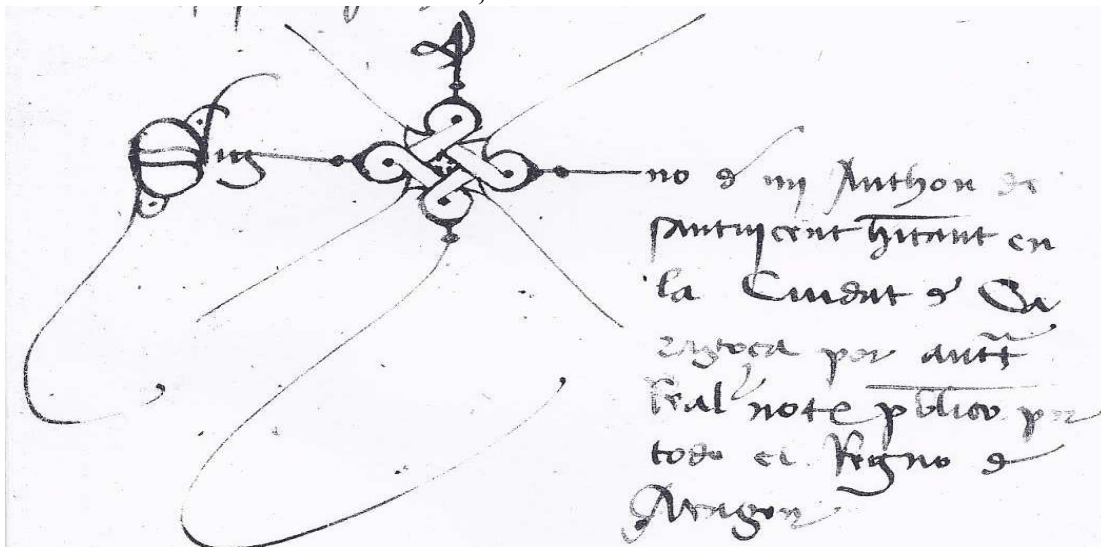 Sig no d mj Anthon de
santvicent hitant en
la Ciudat d Ca
ragoça por autt
Real note publico por
todo el Regno d
Aragon